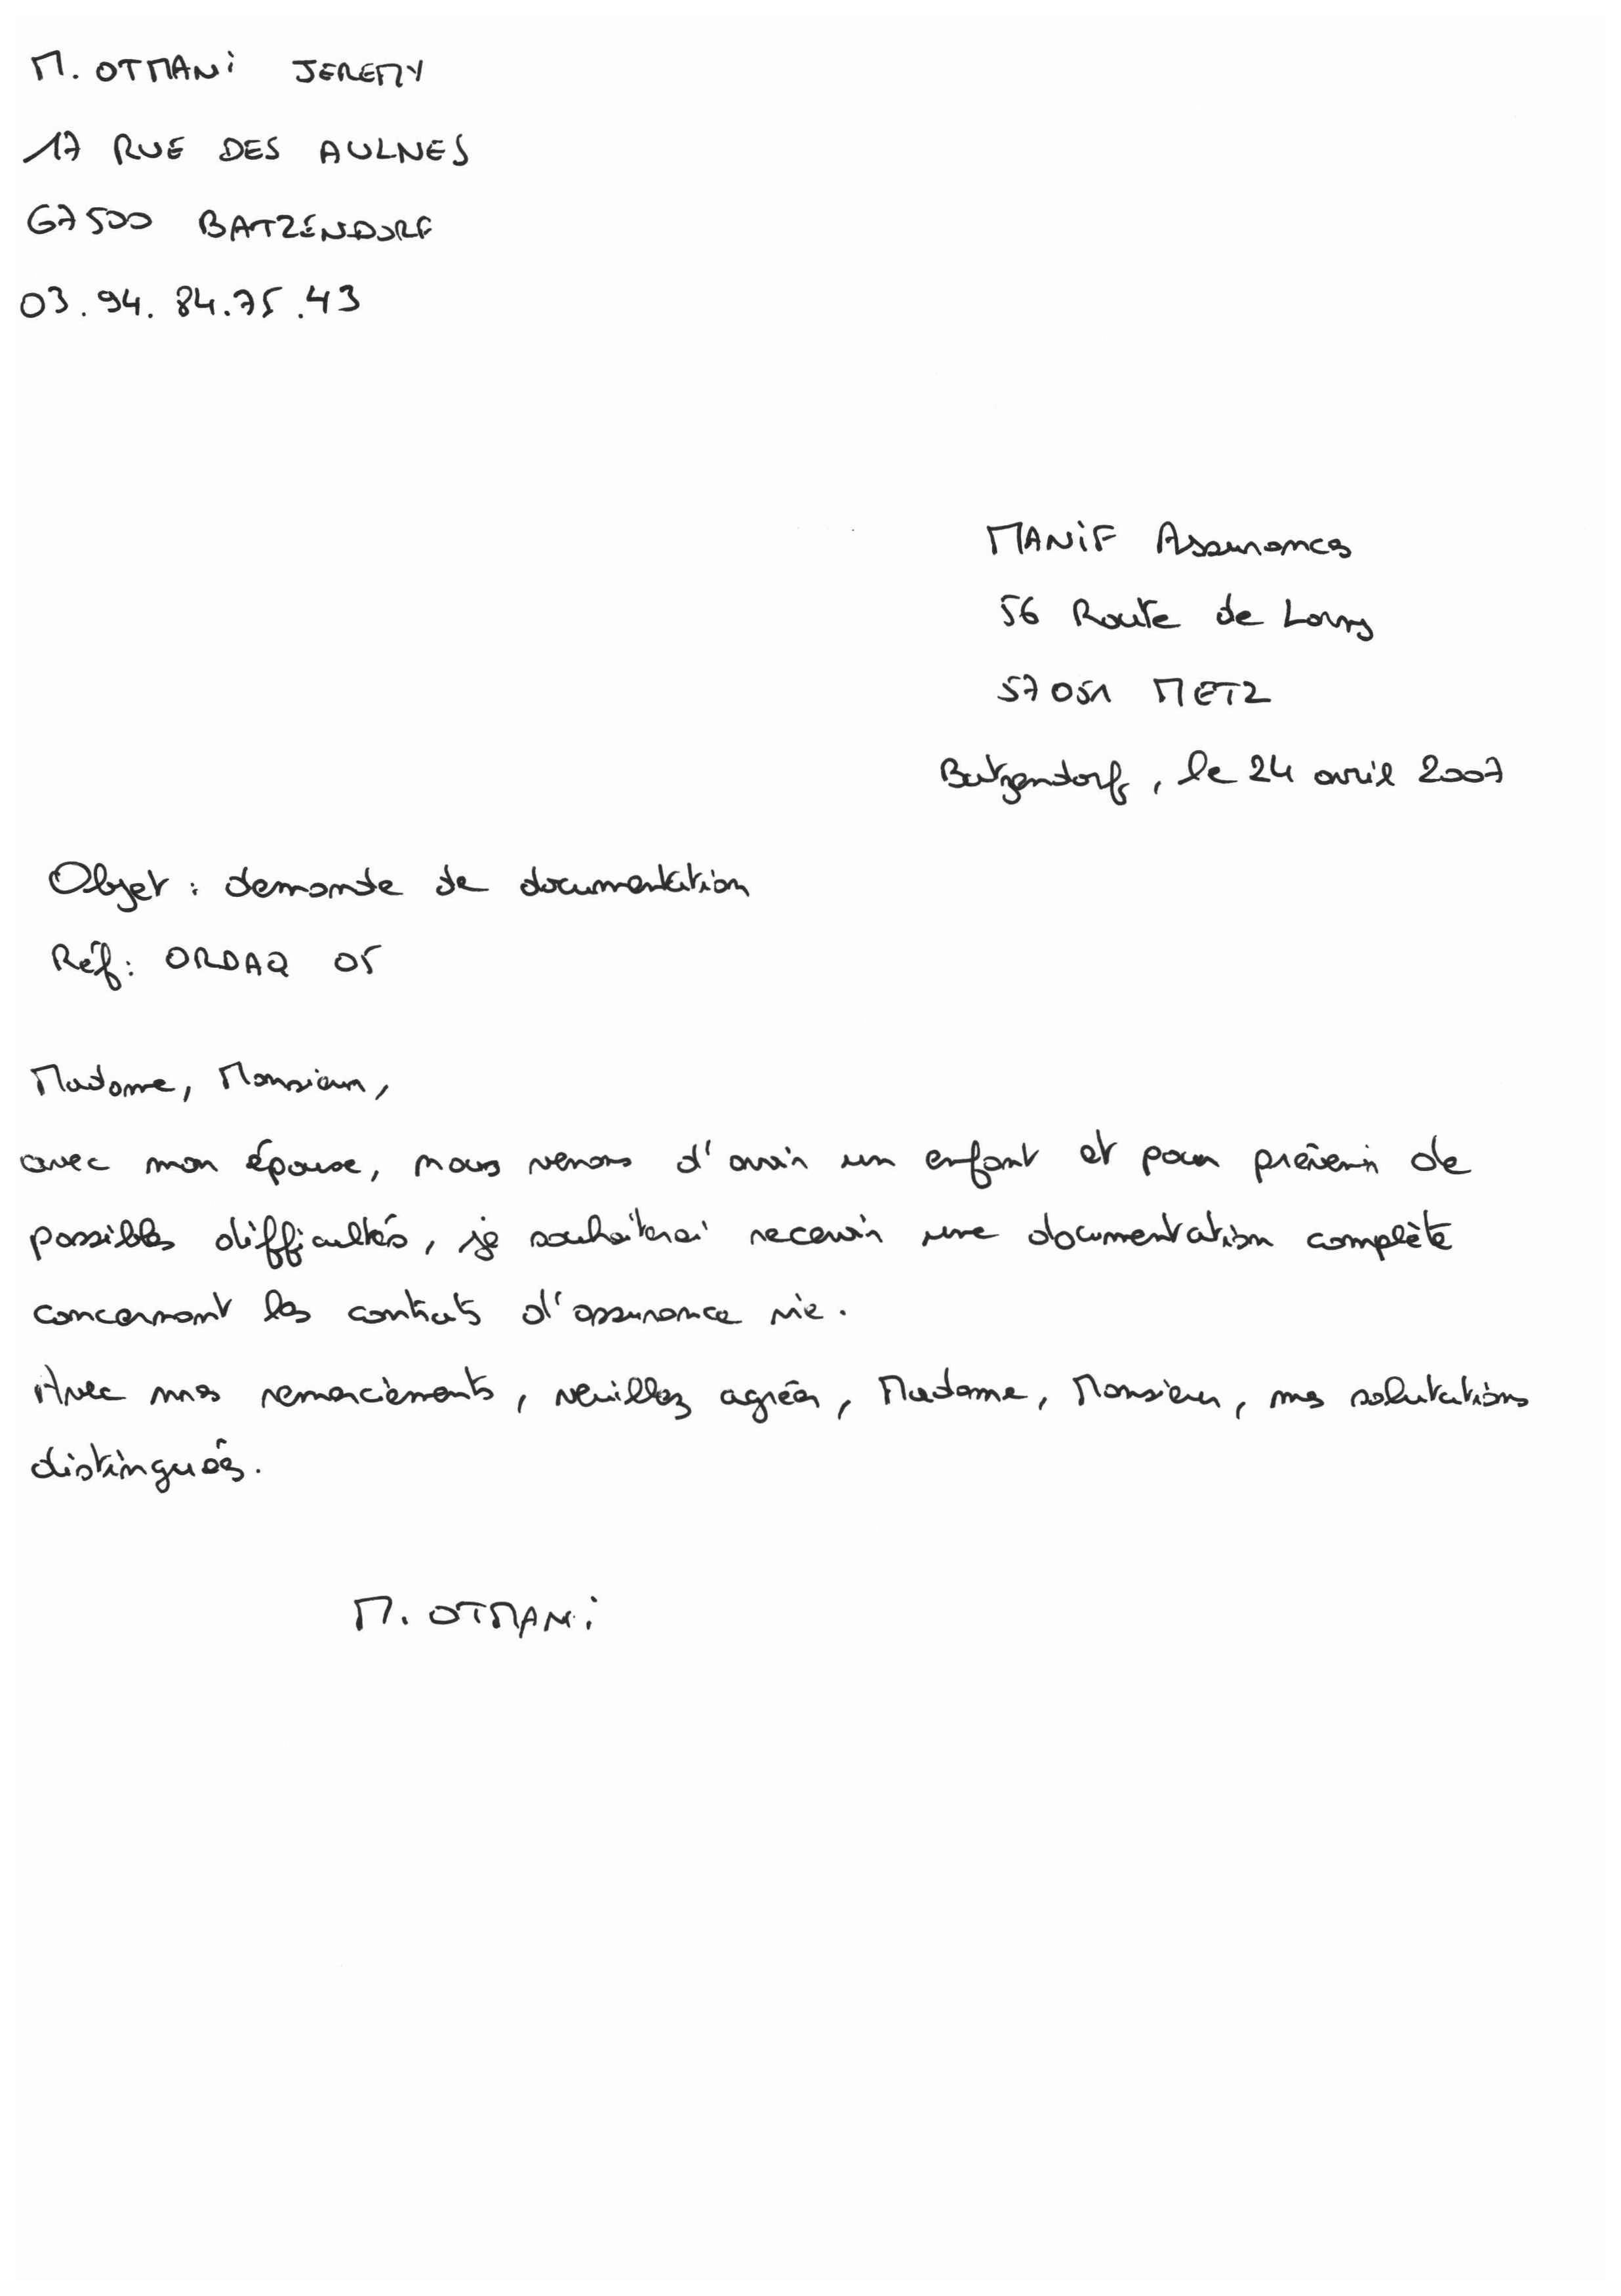 M. OTMANI JEREMY
17 RUE DES AULNES
67500 BATZENDORF
03.94.84.75.43
MANIF Assurances
56 Route de Lorry
57051 METZ
Batzendorf, le 24 avril 2007
Objet : demande de documentation
Réf: ORDAQ 05
Madame, Monsieur,
avec mon épouse, nous venons d'avoir un enfant et pour prévenir de
possibles difficultés, je souhaiterai recevoir une documentation complète
concernant les contrats d'assurance vie.
Avec mes remerciements, veuillez agréer, Madame, Monsieur, mes salutations
distingués.
M. OTMANI